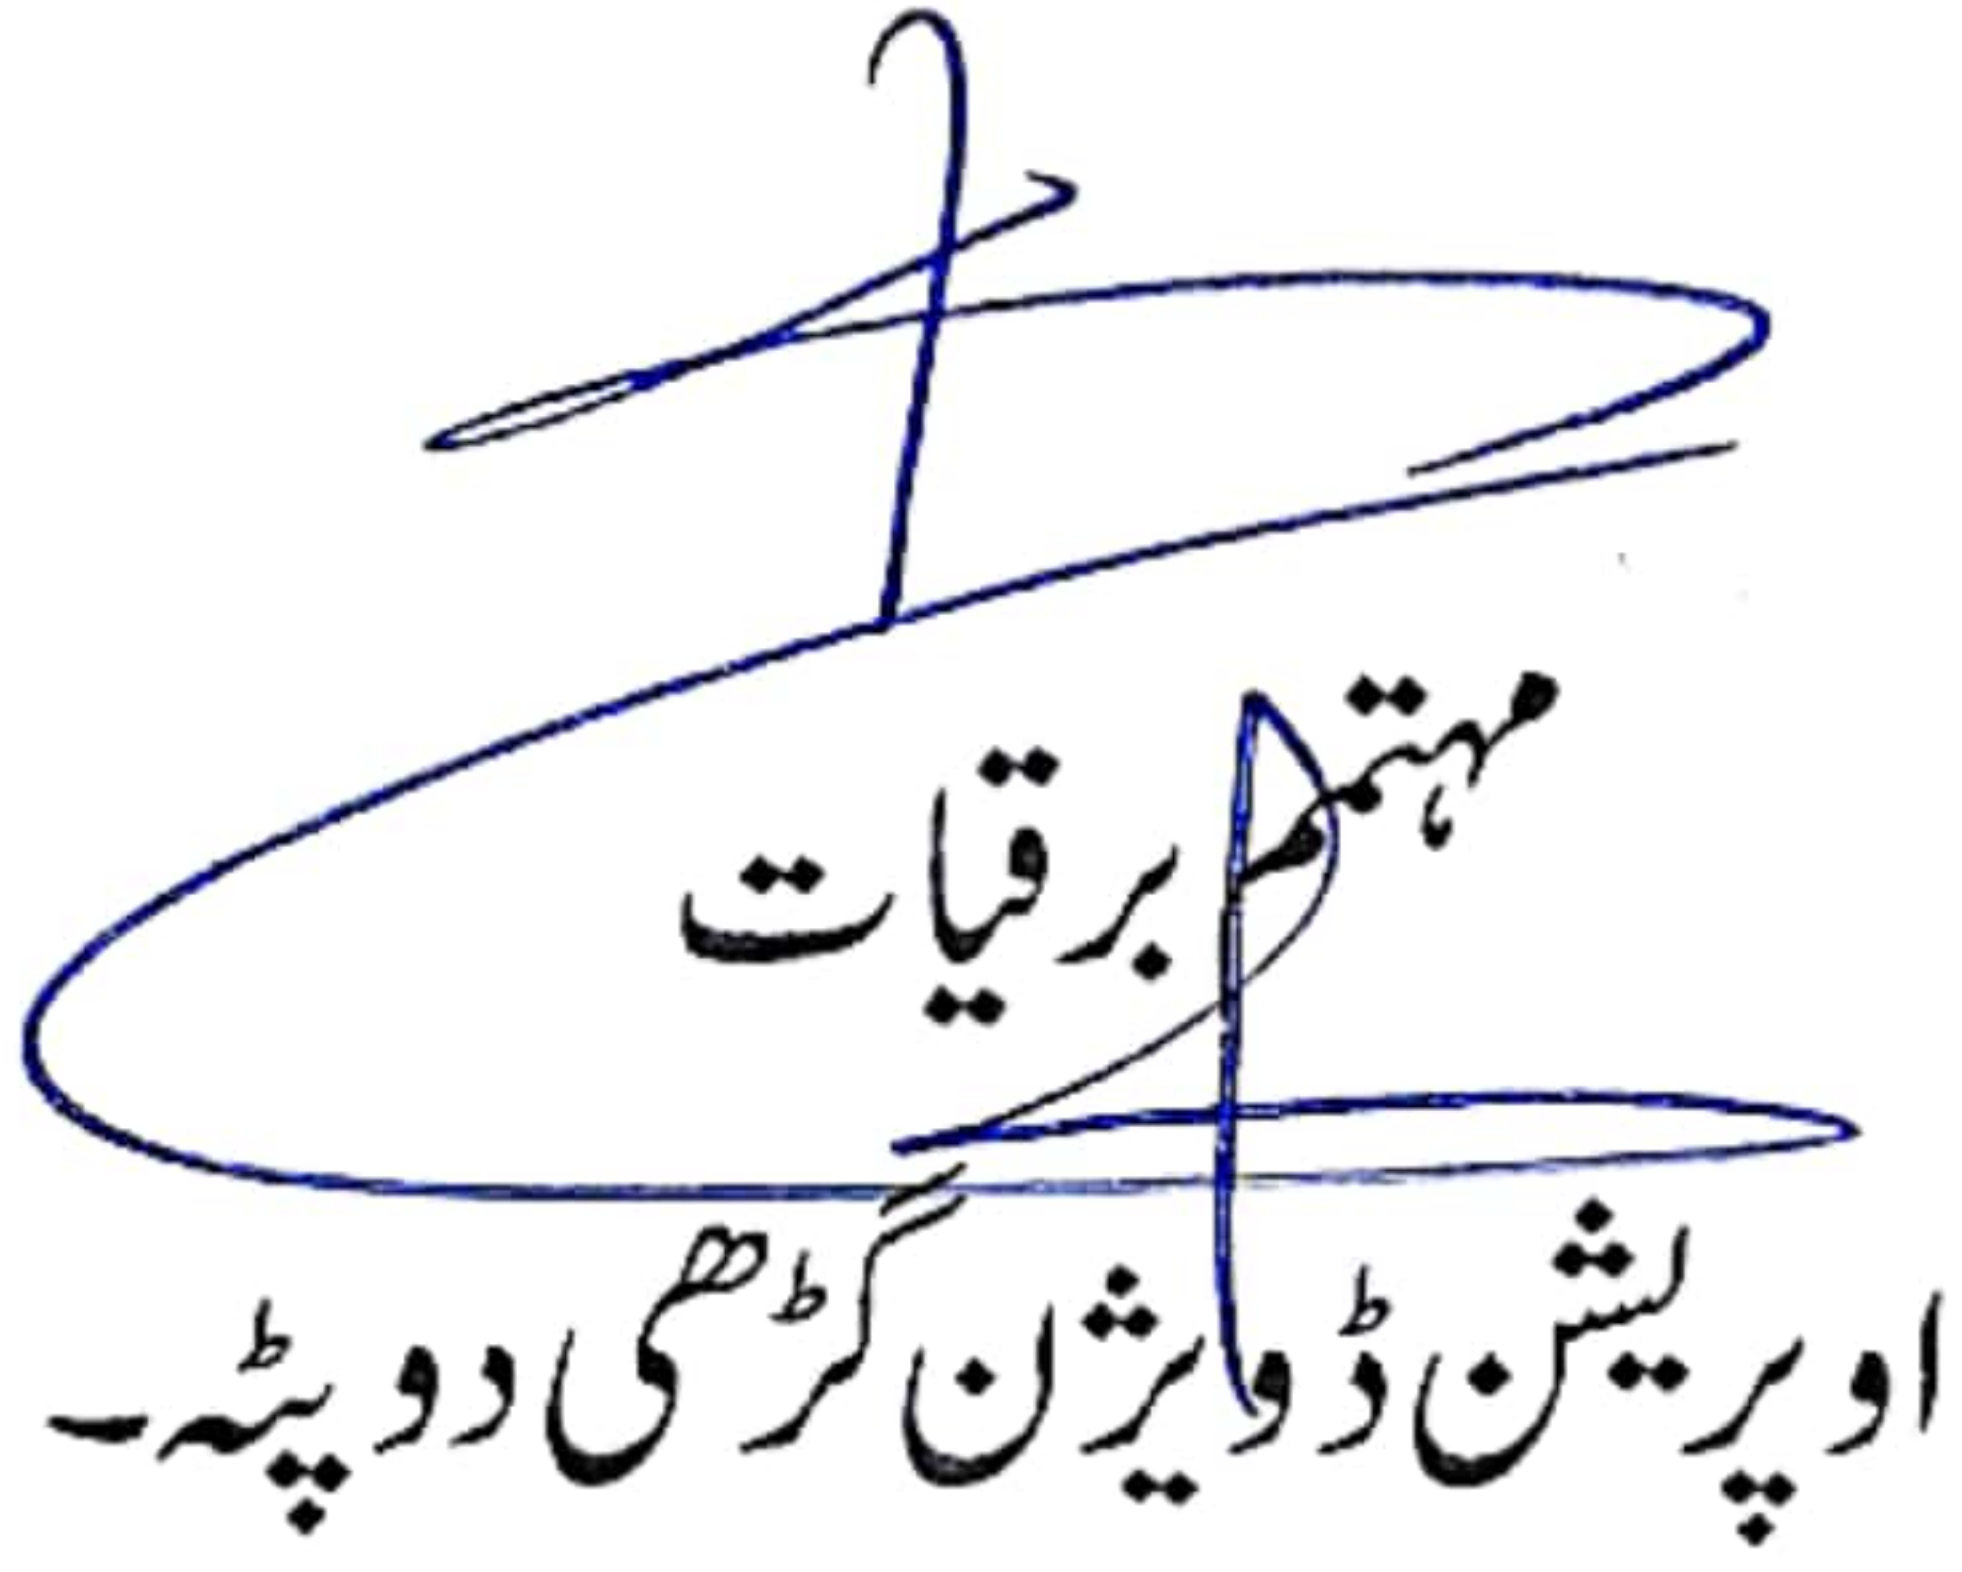 مہتمم برقیات
اوپریشن ڈویژن گڑھی دوپٹہ۔